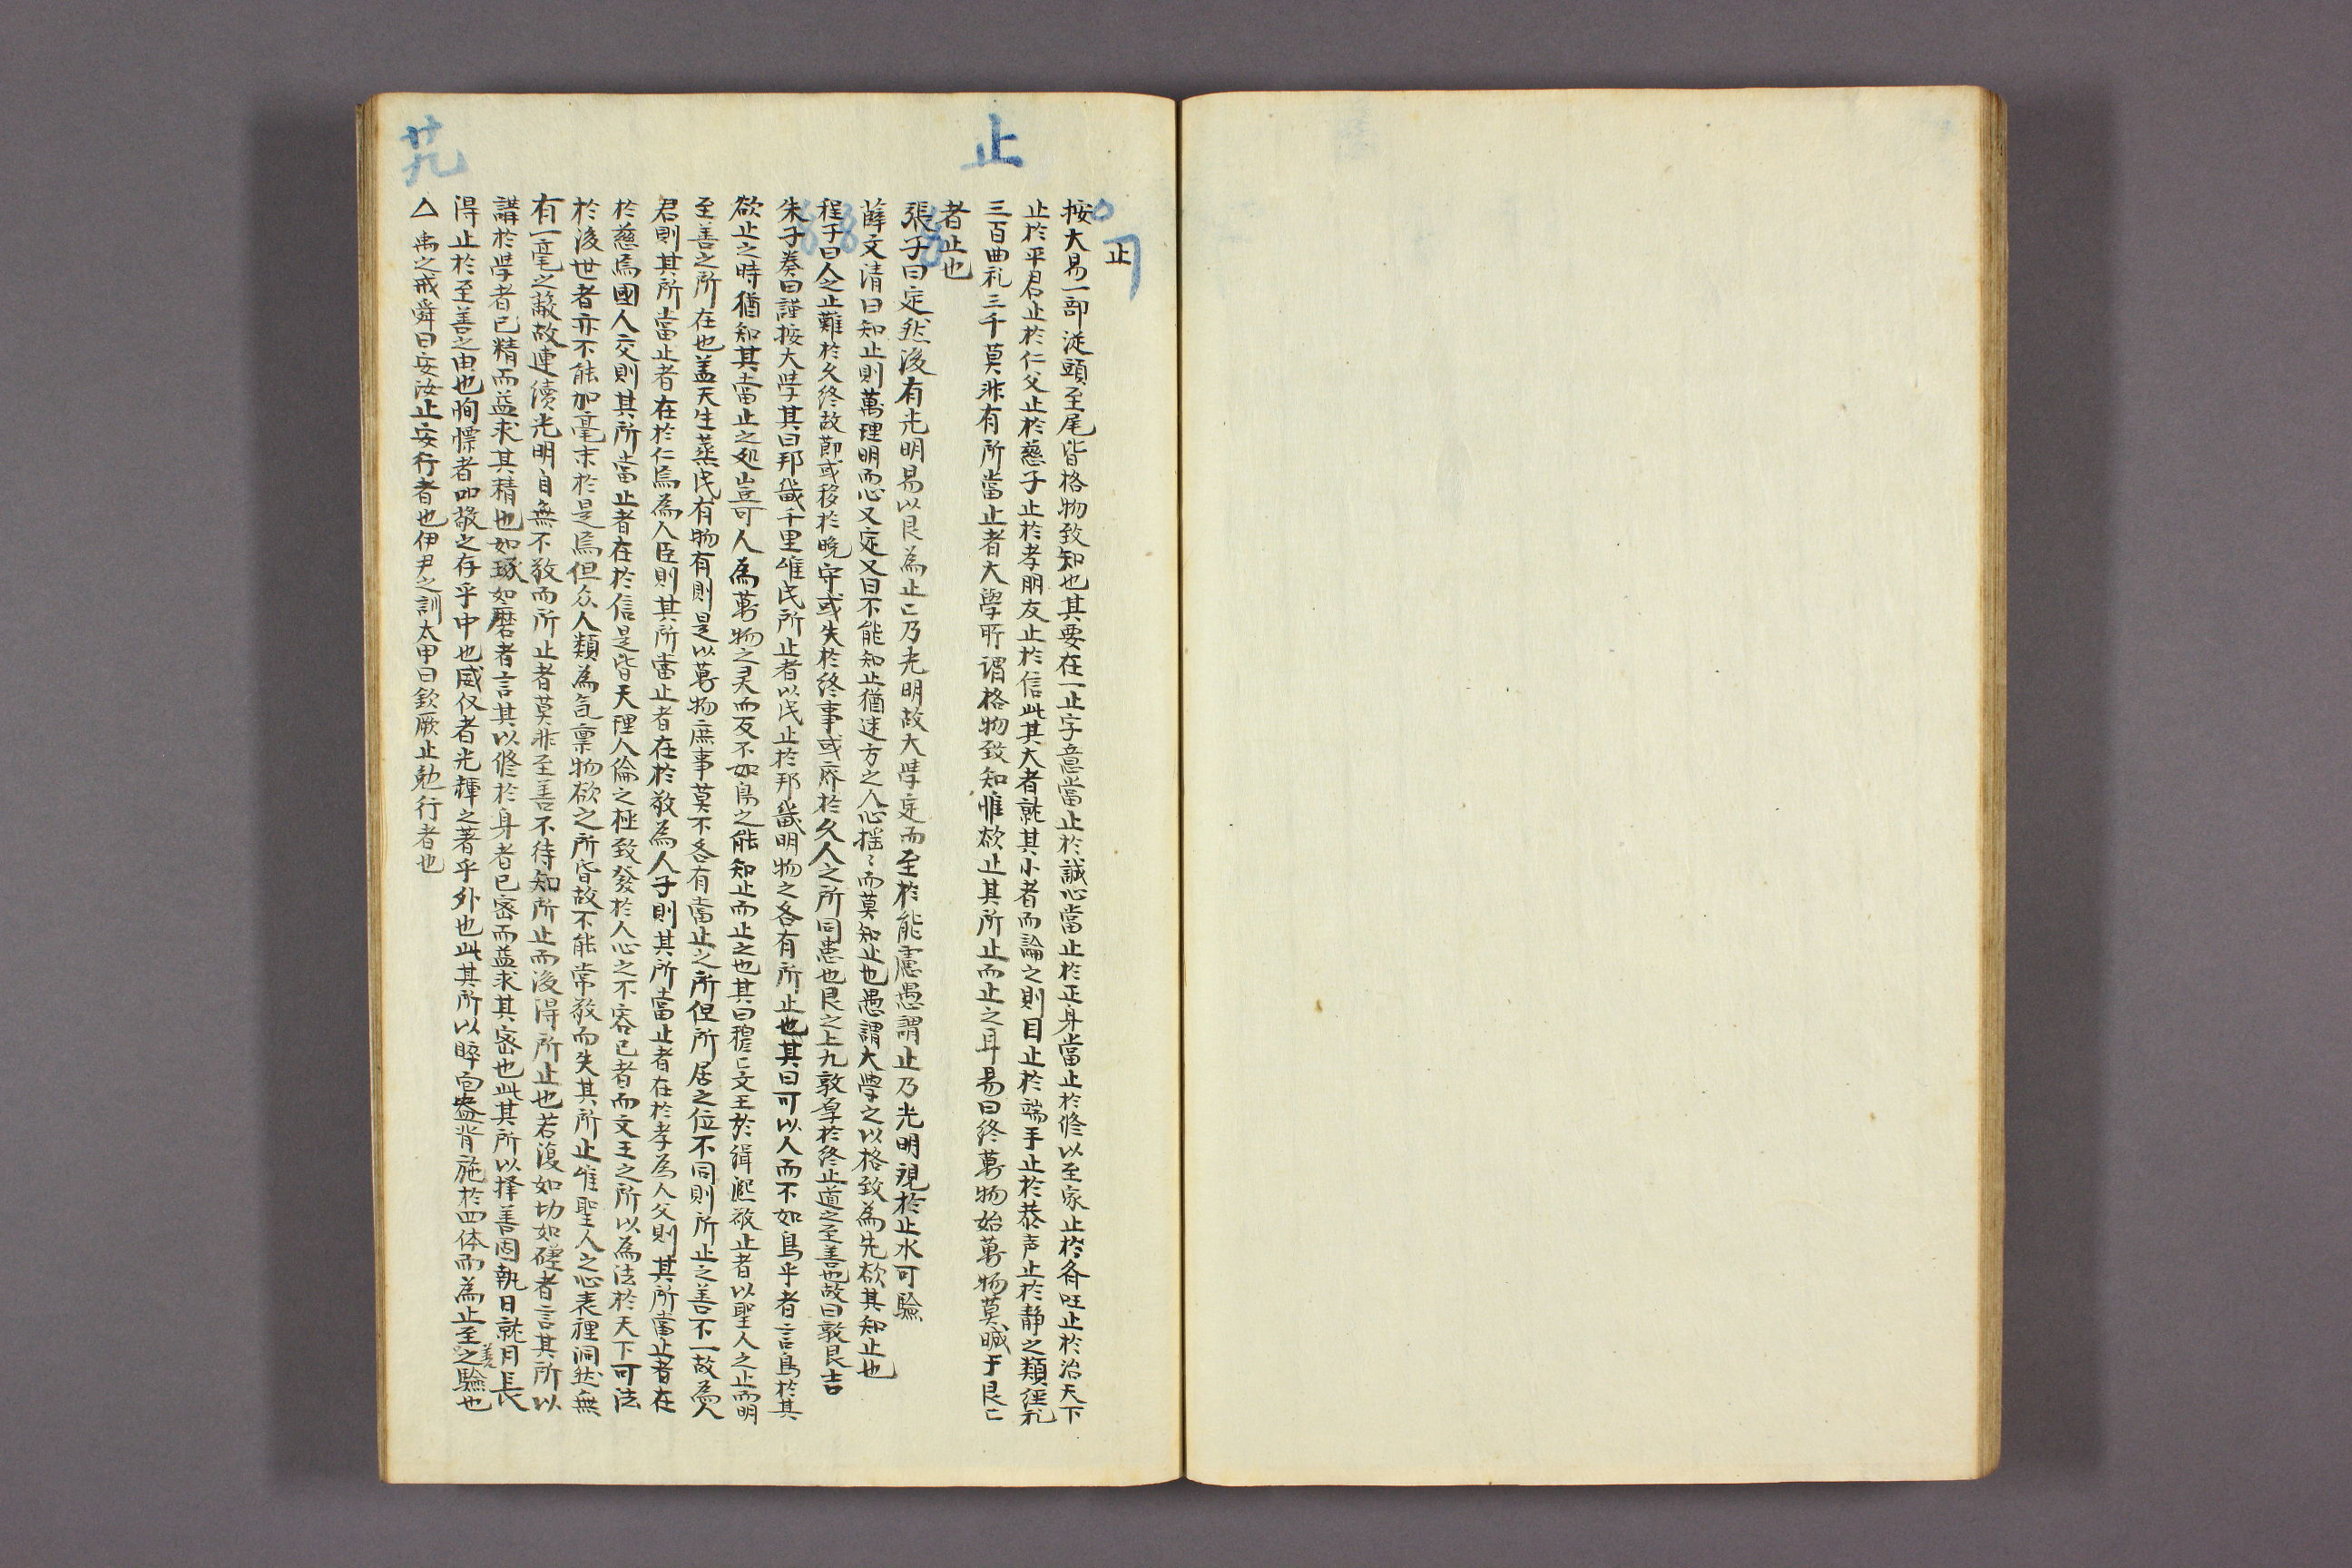 止
止
按大易一部從頭至尾皆格物致知也其要在一止字意當止於誠心當止於正身當止於修以至家止於齐旺止於治天下
止於平君止於仁父止於慈子止於孝朋友止於信此其大者就其小者而論之則目止於端手止於恭声止於静之類經礼
三百曲礼三千莫非有所當止者大學所謂格物致知惟欲止其所止而止之耳易曰終萬物始萬物莫晠于艮〻
者止也
張子曰定然後有光明易以艮為止〻乃光明故大學定而至於能慮愚謂止乃光明視於止水可驗
薛文清曰知止則萬理明而心又定又曰不能知止猶迷方之人心揺〻而莫知止也愚謂大學之以格致為先欲其知止也
程子曰人之止難於久終故節或移於晚守或失於終事或廢於久人之所同患也艮之上九敦厚於終止道之至善也故曰敦艮吉
朱子奏曰謹按大學其曰邦畿千里惟民所止者以民止於邦畿明物之各有所止也其曰可以人而不如鳥乎者言鳥於其
欲止之時猶知其當止之処豈可人為萬物之灵而反不如鳥之能知止而止之也其曰穆〻文王於緝熙敬止者以聖人之止而明
至善之所在也盖天生蒸民有物有則是以萬物庶事莫不各有當止之所但所居之位不同則所止之善不一故為人
君則其所當止者在於仁焉為人臣則其所當止者在於敬為人子則其所當止者在於孝為人父則其所當止者在
於慈焉國人交則其所當止者在於信是皆天理人倫之極致發於人心之不容已者而文王之所以為法於天下可法
於後世者亦不能加毫末於是焉但众人類為氣稟物欲之所昏故不能常敬而失其所止惟聖人之心表裡洞然無
有一毫之蔽故連續光明自無不敬而所止者莫非至善不待知所止而後得所止也若復如切如磋者言其所以
講於學者已精而益求其精也如琢如磨者言其以修於身者已密而益求其密也此其所以择善固執日就月長
得止於至善之由也恂慄者即敬之存乎中也威仪者光輝之著乎外也此其所以睟面盎背施於四体而為止至善之驗也
△禹之戒舜曰安汝止安行者也伊尹之訓太甲曰欽厥止勉行者也